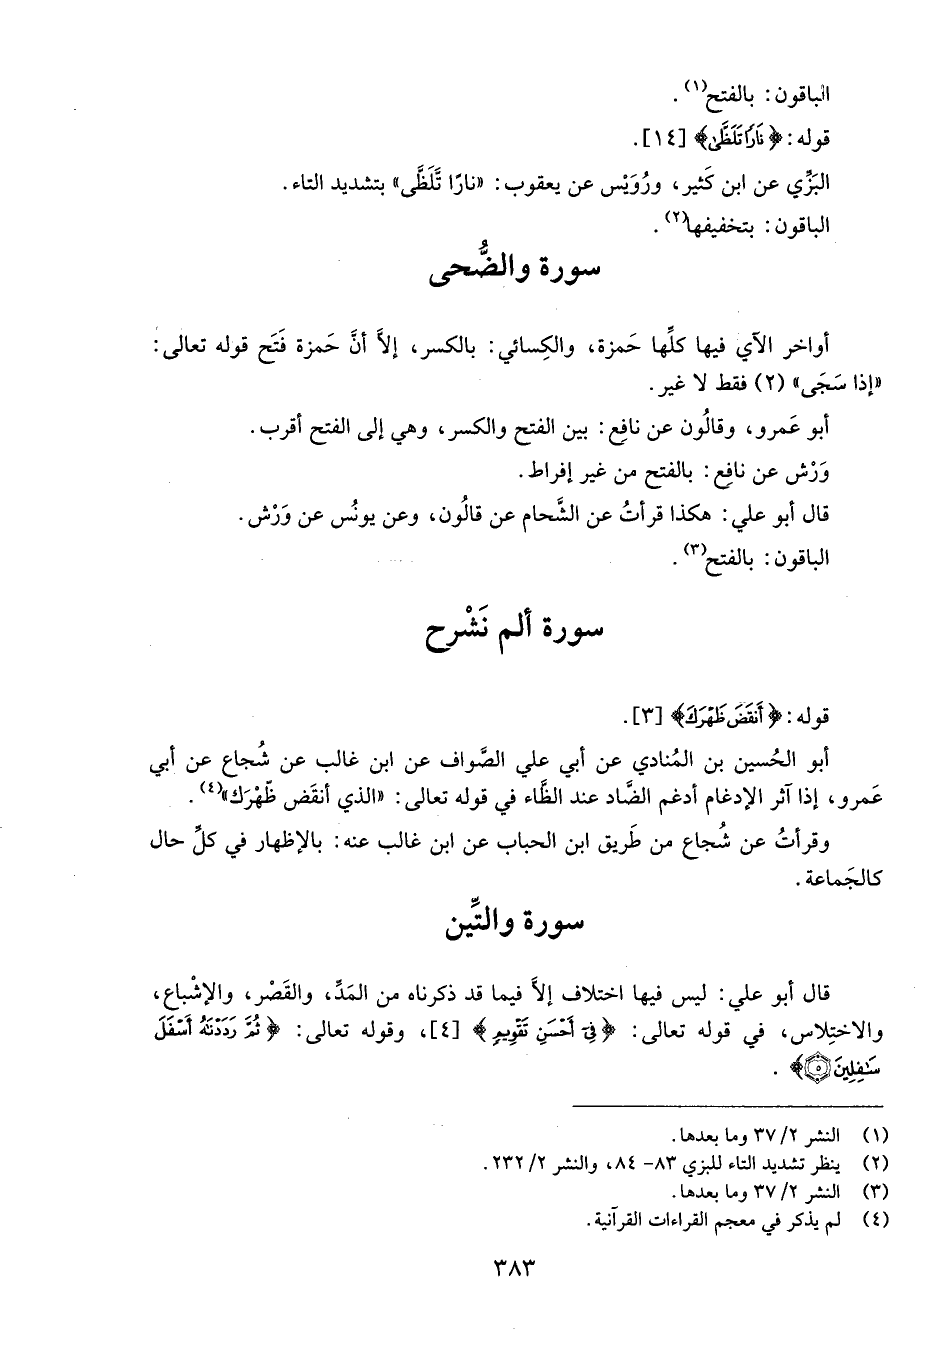 الباقون: بالفتح(١).
قوله: ﴿نَارًا تَلَظَّىٰ﴾ [١٤].
البَزِّي عن ابن كَثير، ورُوَيْس عن يعقوب: «نارًا تَّلَظَّى» بتشديد التاء.
الباقون: بتخفيفها(٢).
سورة والضُّحى
أواخر الآي فيها كلِّها حَمزة، والكِسائي: بالكسر، إلاَّ أنَّ حَمزة فَتَح قوله تعالى:
«إذا سَجَى» (٢) فقط لا غير.
أبو عَمرو، وقالُون عن نافِع: بين الفتح والكسر، وهي إلى الفتح أقرب.
وَرْش عن نافِع: بالفتح من غير إفراط.
قال أبو علي: هكذا قرأتُ عن الشَّحام عن قالُون، وعن يونُس عن وَرْش.
الباقون: بالفتح(٣).
سورة ألم نَشْرح
قوله: ﴿أَنقَضَ ظَهْرَكَ﴾ [٣].
أبو الحُسين بن المُنادي عن أبي علي الصَّواف عن ابن غالب عن شُجاع عن أبي
عَمرو، إذا آثر الإدغام أدغم الضَّاد عند الظَّاء في قوله تعالى: «الذي أنقَض ظّهْرَك»(٤).
وقرأتُ عن شُجاع من طَريق ابن الحباب عن ابن غالب عنه: بالإظهار في كلِّ حال
كالجَماعة.
سورة والتِّين
قال أبو علي: ليس فيها اختلاف إلاَّ فيما قد ذكرناه من المَدِّ، والقَصْر، والإشْباع،
والاختِلاس، في قوله تعالى: ﴿فِىٓ أَحْسَنِ تَقْوِيمٍ﴾ [٤]، وقوله تعالى: ﴿ثُمَّ رَدَدْنَٰهُ أَسْفَلَ
سَٰفِلِينَ ٥﴾.
(١) النشر ٢/ ٣٧ وما بعدها.
(٢) ينظر تشديد التاء للبزي ٨٣- ٨٤، والنشر ٢/ ٢٣٢.
(٣) النشر ٢/ ٣٧ وما بعدها.
(٤) لم يذكر في معجم القراءات القرآنية.
٣٨٣